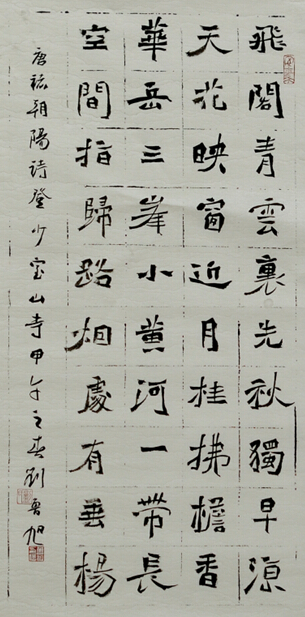 飛閣青雲裏先秋獨早涼
天花映窗近月桂拂檐香
華岳三峯小黄河一帶長
空間指歸路烟處有垂楊
唐褚朝陽詩登少室山寺甲午之春劉魯旭